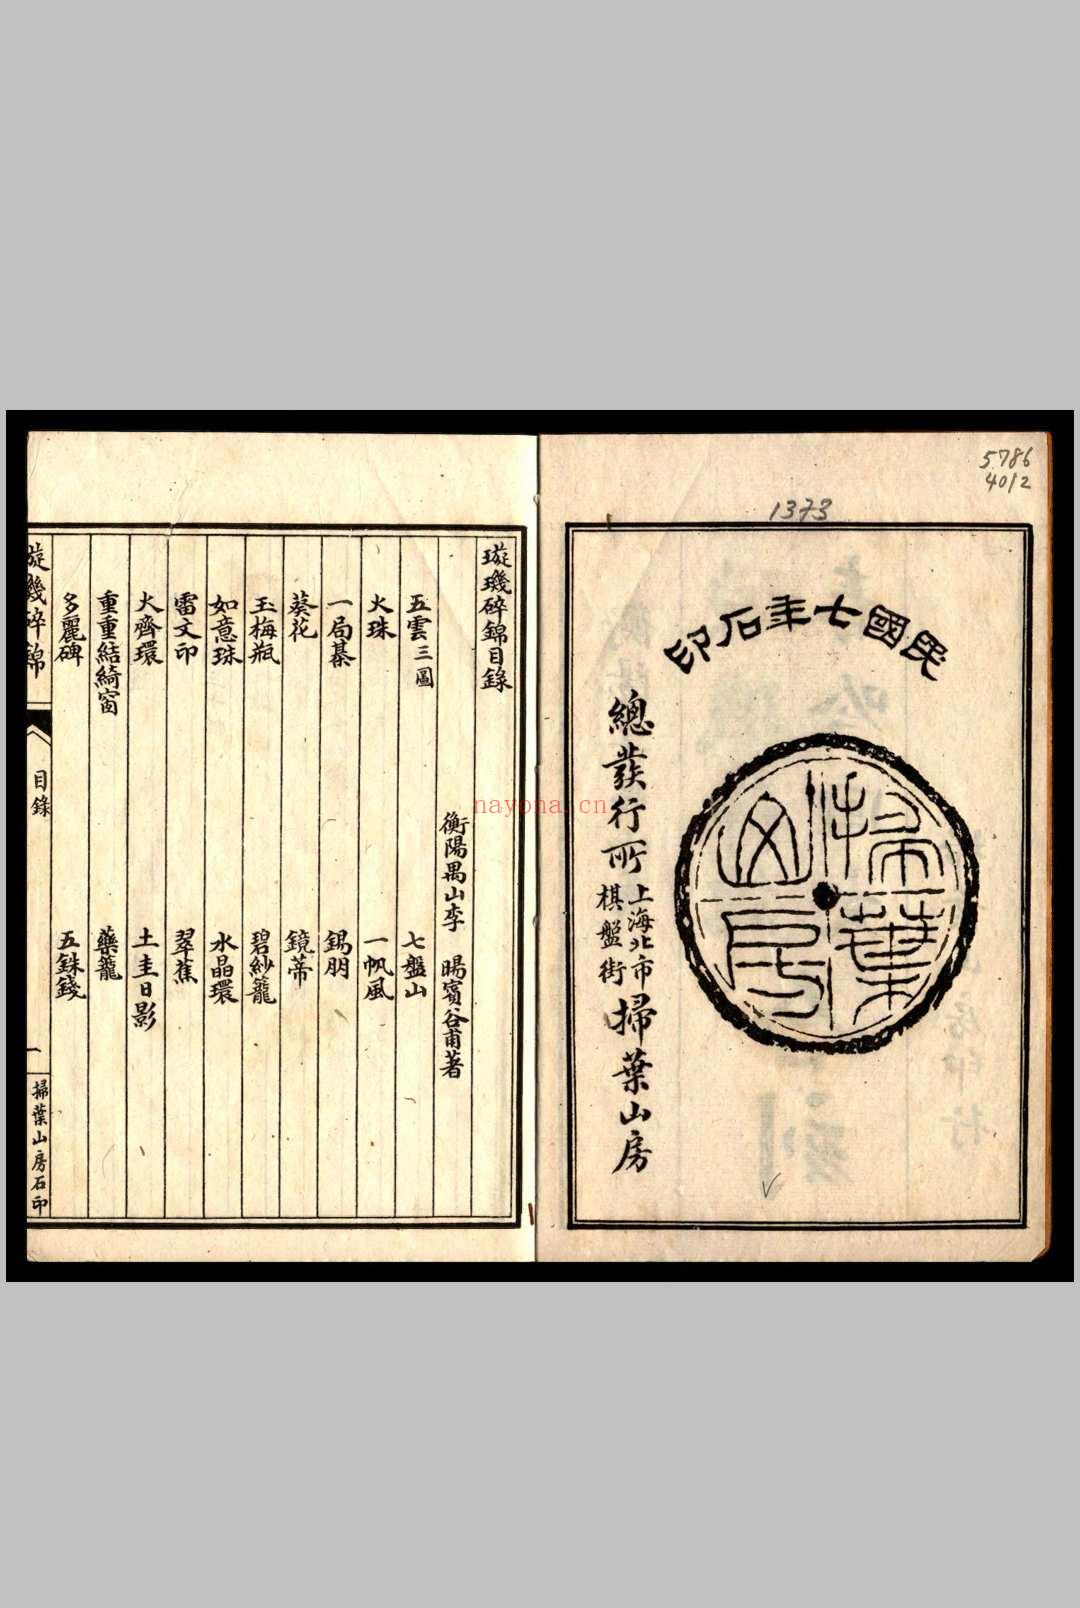 5786
4012
1373
民國七年石印
掃葉山房
總發行所
上海北市
棋盤街
掃葉山房
璇璣碎錦目錄
衡陽禺山李 暘賓谷甫著
五雲三圖 七盤山
火珠 一帆風
一局棊 錫朋
葵花 鏡蒂
玉梅瓶 碧紗籠
如意珠 水晶環
雷文印 翠蕉
火齊環 土圭日影
重重結綺窗 藥籠
多麗碑 五銖錢
璇璣碎錦 目錄 一 掃葉山房石印
nayona.cn